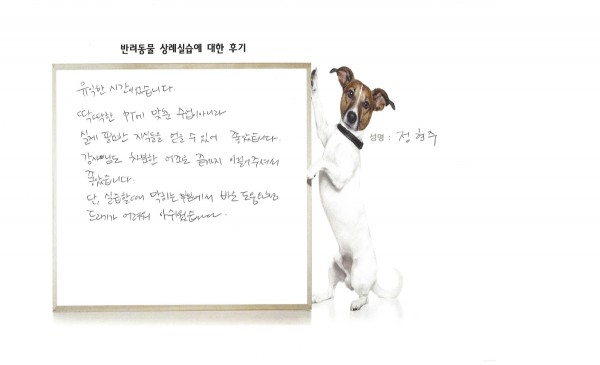 반려동물 상례실습에 대한 후기
유익한 시간이었습니다.
딱딱한 PPT에 맞춘 수업이아니라
실제 필요한 지식들을 얻을 수 있어 좋았습니다.
강사님도 차분한 어조로 끝까지 이끌어주셔서
좋았습니다.
단, 실습할때 막히는 부분에서 바로 도움
드리기가 어려워 아쉬웠습니다.
성명 : 정현주